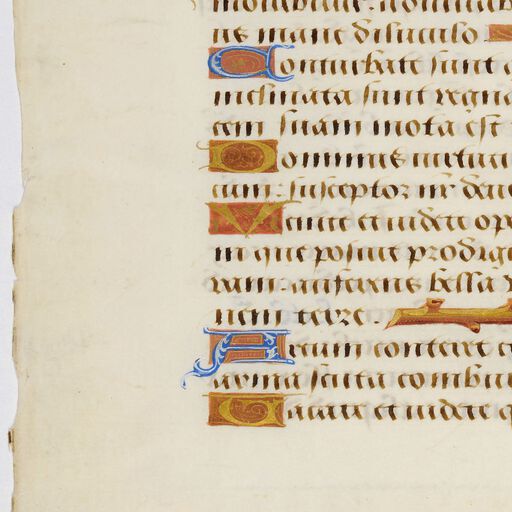 ne mane diluculo
Conturbate sunt
inclinata sunt regna
tem suam mota est
Dominus virtu
cum: susceptor nr deus
Venite et videte ope
in que posuit prodigi
ram: auferens bella
nem terre.
Arcum conteret
arma: scuta combu
Vacate et videte q